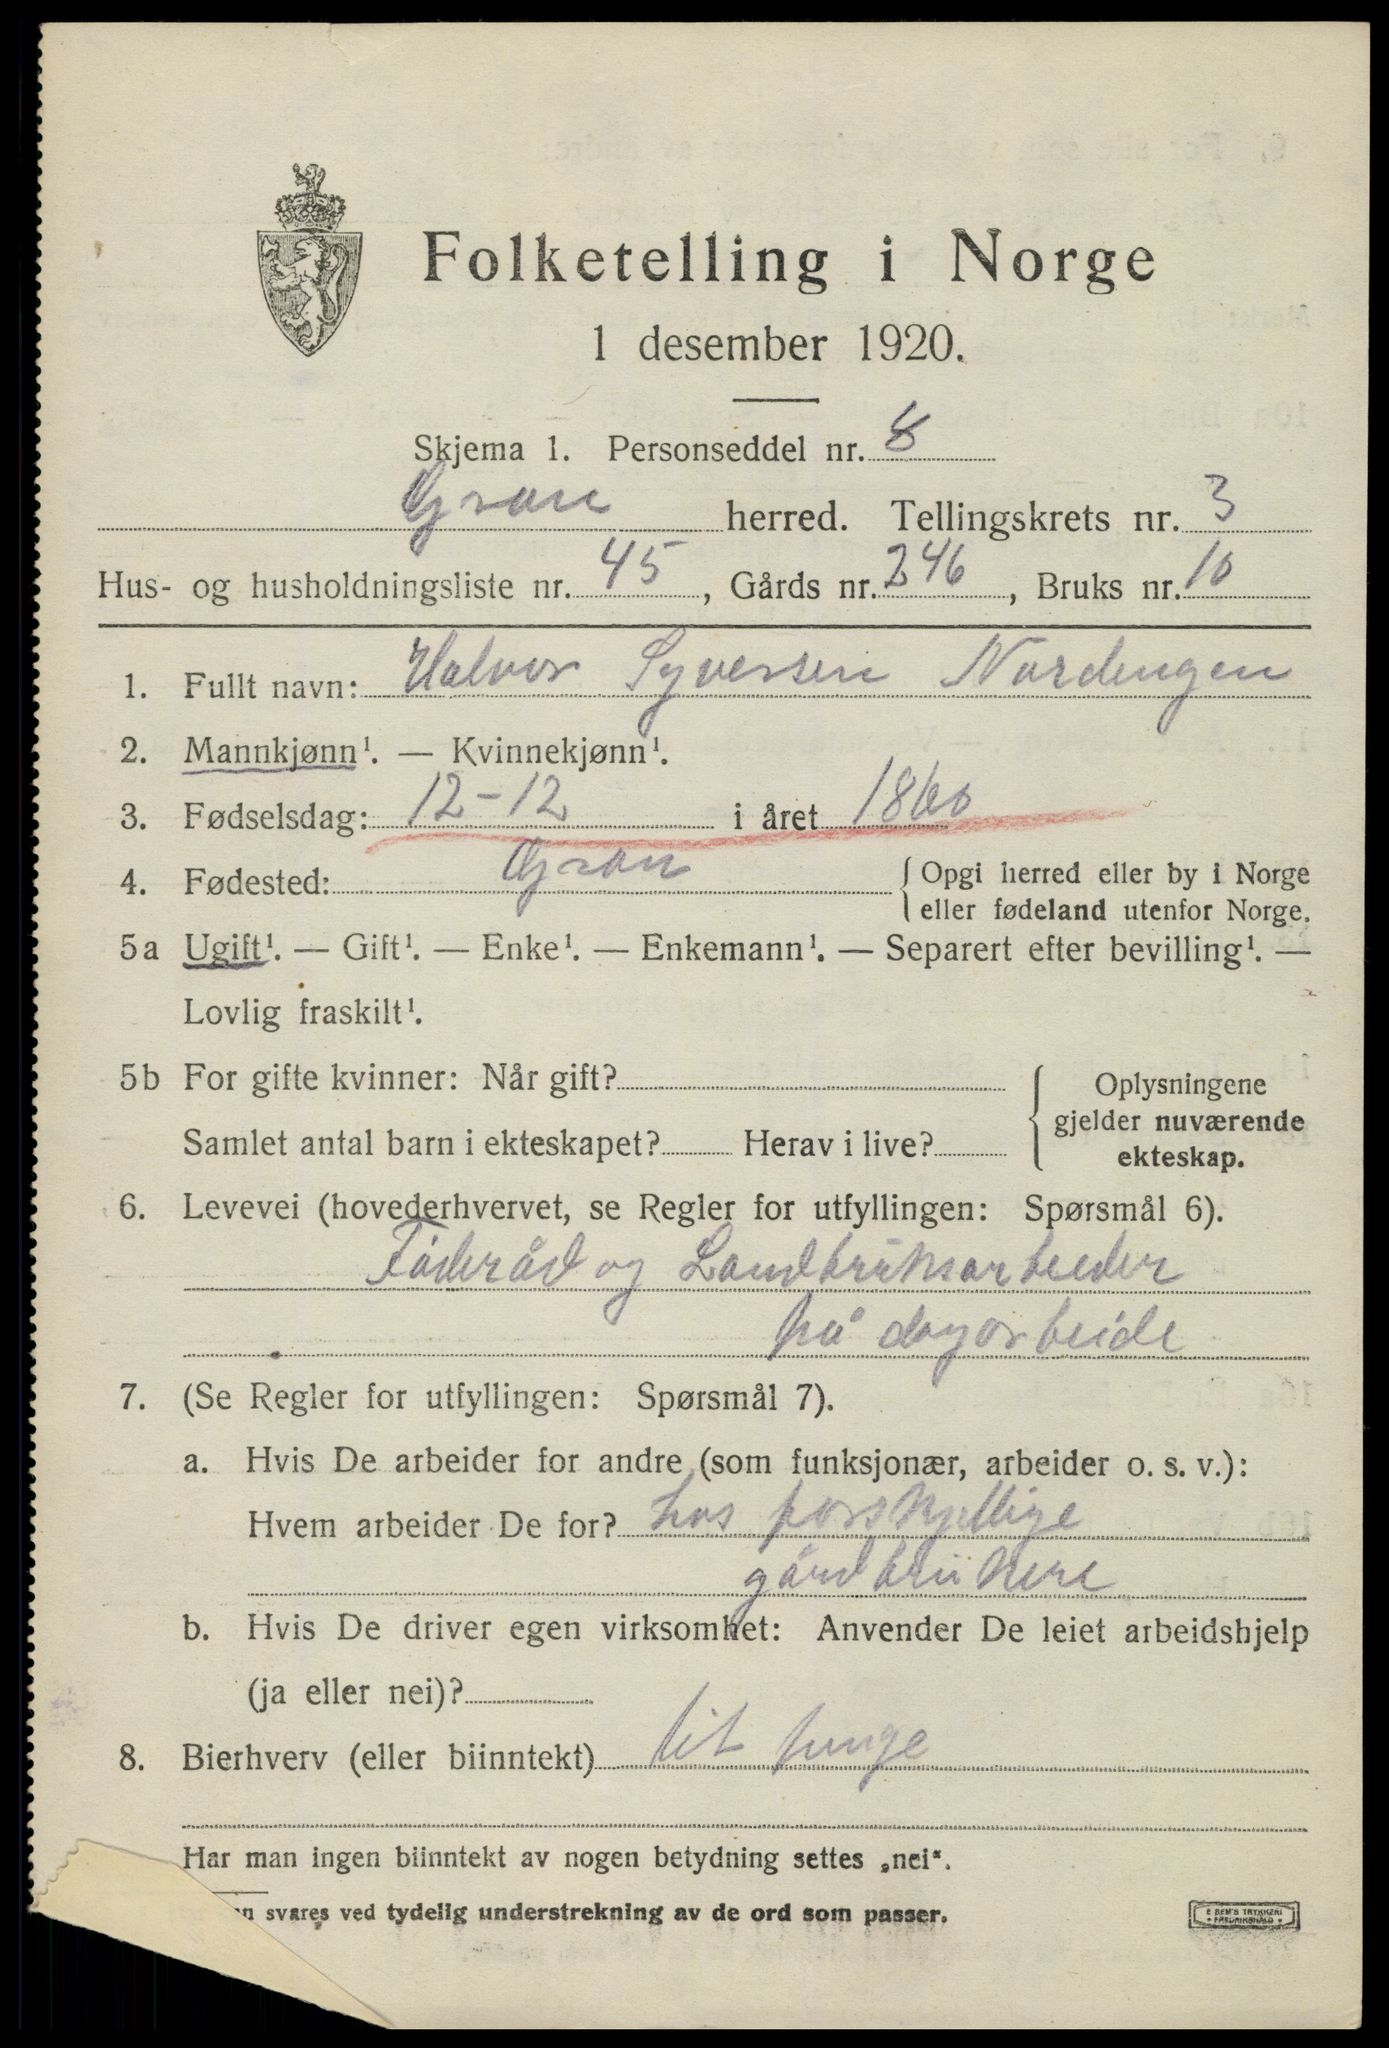 Folketelling i Norge
1 desember 1920.
Skjema 1. Personseddel nr. 8
Gran herred. Tellingskrets nr. 3
Hus- og husholdningsliste nr. 45, Gårds nr. 246, Bruks nr. 10
1. Fullt navn: Halvor Syversen Nordengen
2. Mannkjønn¹. — Kvinnekjønn¹.
3. Fødselsdag: 12-12 i året 1860
4. Fødested: Gran { Opgi herred eller by i Norge
eller fødeland utenfor Norge.
5a Ugift¹. — Gift¹. — Enke¹. — Enkemann¹. — Separert efter bevilling¹. —
Lovlig fraskilt¹.
5b For gifte kvinner: Når gift? { Oplysningene
gjelder nuværende
ekteskap.
Samlet antal barn i ekteskapet? Herav i live?
6. Levevei (hovederhvervet, se Regler for utfyllingen: Spørsmål 6).
Föderåd og Landbruksarbeider
på dagarbeide
7. (Se Regler for utfyllingen: Spørsmål 7).
a. Hvis De arbeider for andre (som funksjonær, arbeider o. s. v.):
Hvem arbeider De for? hos forskjellige
gårdbrukere
b. Hvis De driver egen virksomhet: Anvender De leiet arbeidshjelp
(ja eller nei)?
8. Bierhverv (eller biinntekt)
Har man ingen biinntekt av nogen betydning settes „nei“.
svares ved tydelig understrekning av de ord som passer.
E SEM'S TRYKKERI
FREDRIKSHALD